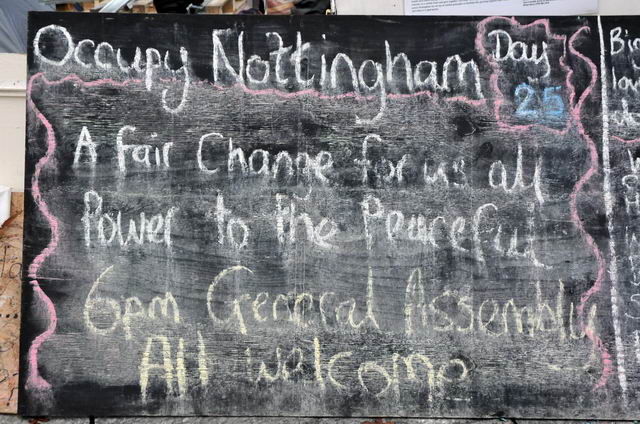 Occupy Nottingham Day 25
A fair Change for us all
Power to the Peaceful
6pm General Assembly
All welcome
Big